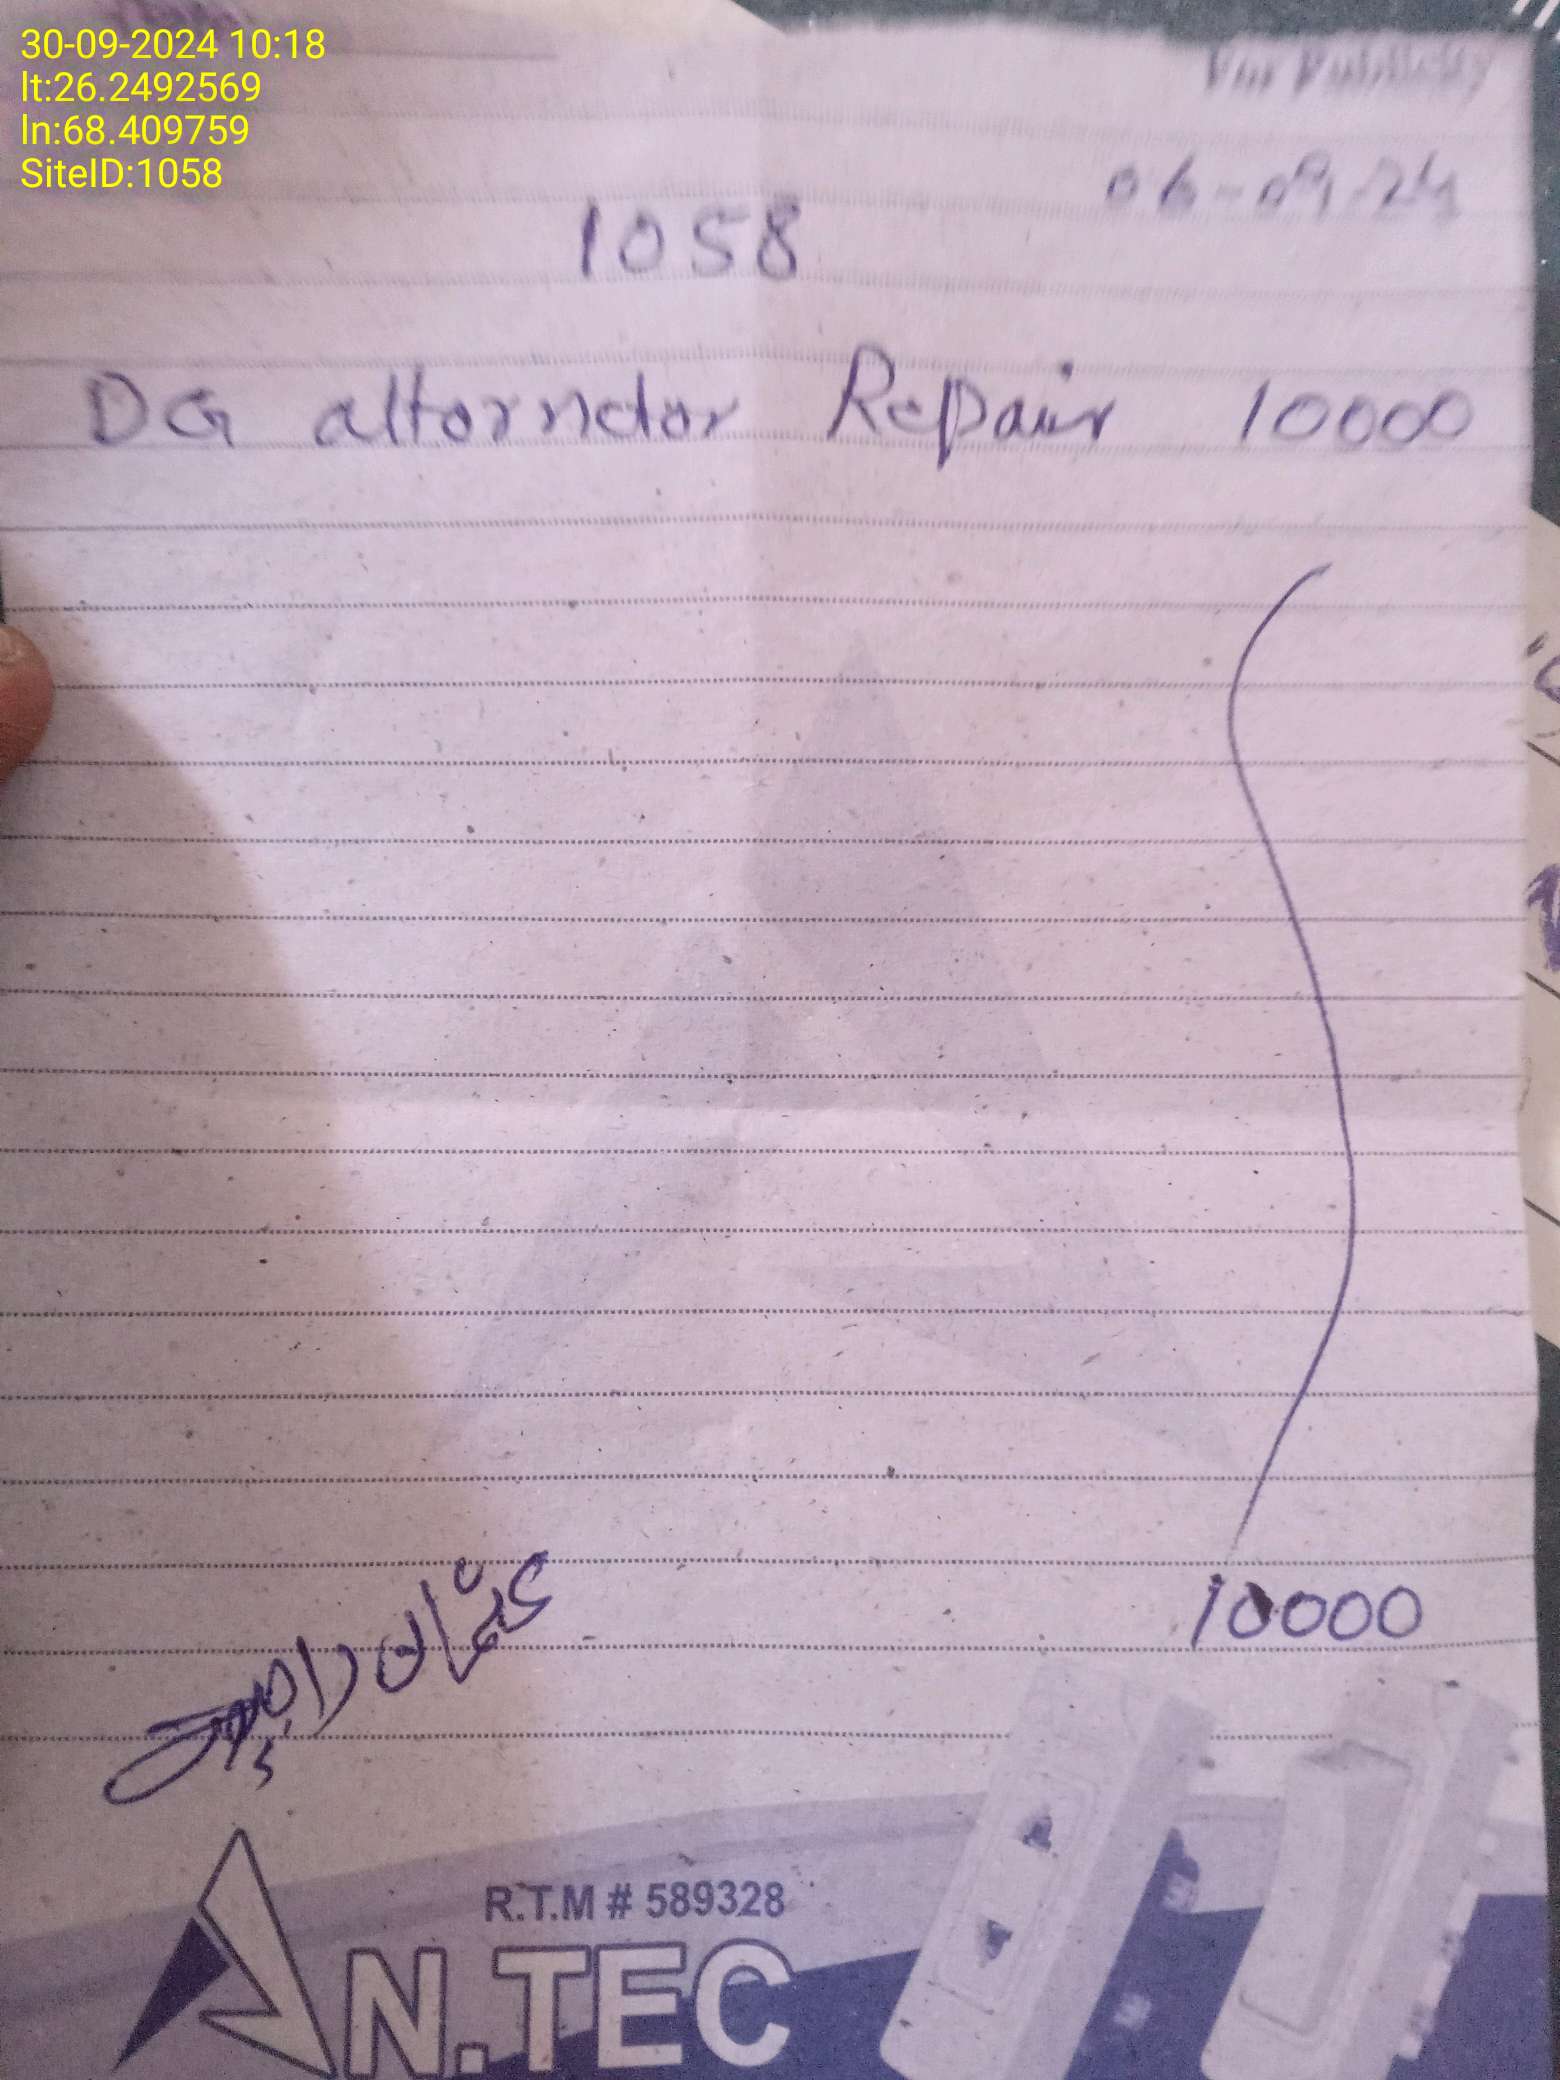 30-09-2024 10:18
lt:26.2492569
ln:68.409759
SiteID:1058
For Publicity
06-09-24
1058
DG altorndor Repair 10000
10000
R.T.M # 589328
AN.TEC